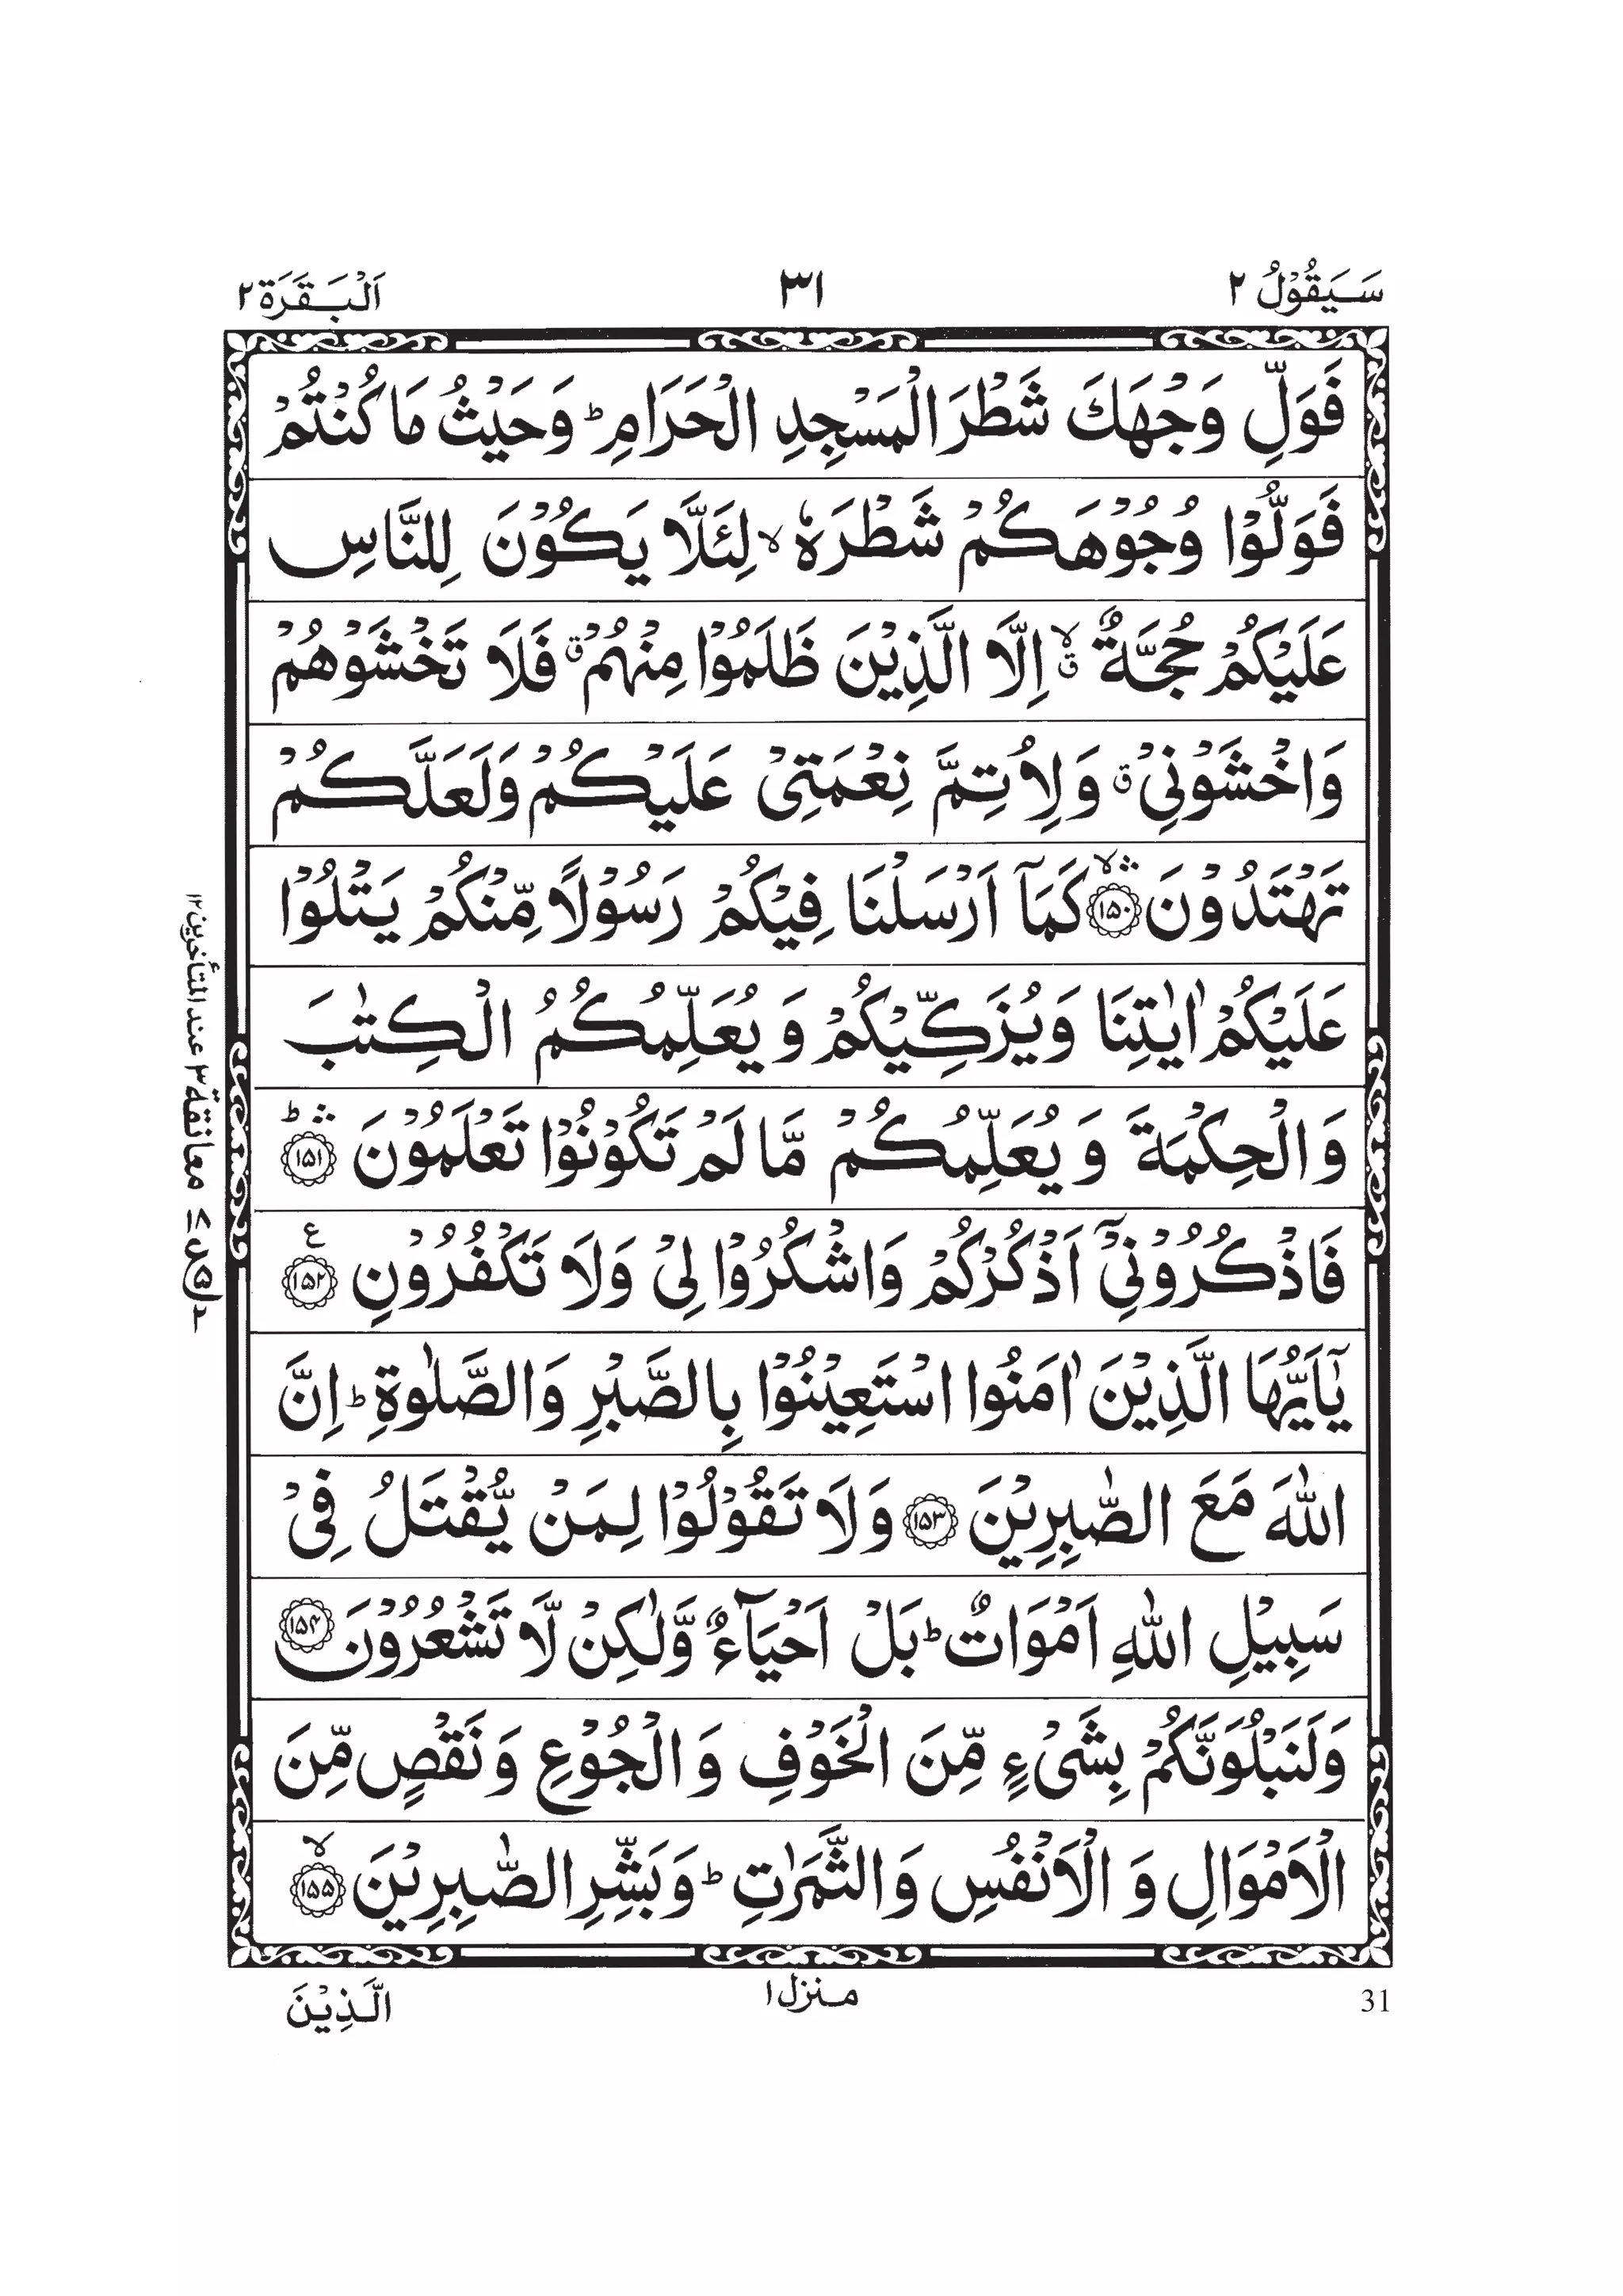 سَيَقُوْلُ ٢
٣١
اَلْبَقَرَة ٢
فَوَلِّ وَجْهَكَ شَطْرَ الْمَسْجِدِ الْحَرَامِ ؕ وَحَيْثُ مَا كُنْتُمْ
فَوَلُّوْا وُجُوْهَكُمْ شَطْرَهٗ ۙ لِئَلَّا يَكُوْنَ لِلنَّاسِ
عَلَيْكُمْ حُجَّةٌ ۙۗ اِلَّا الَّذِيْنَ ظَلَمُوْا مِنْهُمْ ۗ فَلَا تَخْشَوْهُمْ
وَاخْشَوْنِيْ ۗ وَلِاُتِمَّ نِعْمَتِيْ عَلَيْكُمْ وَلَعَلَّكُمْ
تَهْتَدُوْنَ ۛۙ ﴿١٥٠﴾ كَمَآ اَرْسَلْنَا فِيْكُمْ رَسُوْلًا مِّنْكُمْ يَتْلُوْا
عَلَيْكُمْ اٰيٰتِنَا وَيُزَكِّيْكُمْ وَيُعَلِّمُكُمُ الْكِتٰبَ
وَالْحِكْمَةَ وَيُعَلِّمُكُمْ مَّا لَمْ تَكُوْنُوْا تَعْلَمُوْنَ ۛؕ ﴿١٥١﴾
فَاذْكُرُوْنِيْٓ اَذْكُرْكُمْ وَاشْكُرُوْا لِيْ وَلَا تَكْفُرُوْنِ ﴿١٥٢﴾ ع
يٰٓاَيُّهَا الَّذِيْنَ اٰمَنُوا اسْتَعِيْنُوْا بِالصَّبْرِ وَالصَّلٰوةِ ؕ اِنَّ
اللّٰهَ مَعَ الصّٰبِرِيْنَ ﴿١٥٣﴾ وَلَا تَقُوْلُوْا لِمَنْ يُّقْتَلُ فِيْ
سَبِيْلِ اللّٰهِ اَمْوَاتٌ ؕ بَلْ اَحْيَآءٌ وَّلٰكِنْ لَّا تَشْعُرُوْنَ ﴿١٥٤﴾
وَلَنَبْلُوَنَّكُمْ بِشَيْءٍ مِّنَ الْخَوْفِ وَالْجُوْعِ وَنَقْصٍ مِّنَ
الْاَمْوَالِ وَالْاَنْفُسِ وَالثَّمَرٰتِ ؕ وَبَشِّرِ الصّٰبِرِيْنَ ۙ ﴿١٥٥﴾
معانقة ٣ عند المتأخرين ١٢
31
منزل ١
الَّذِيْنَ